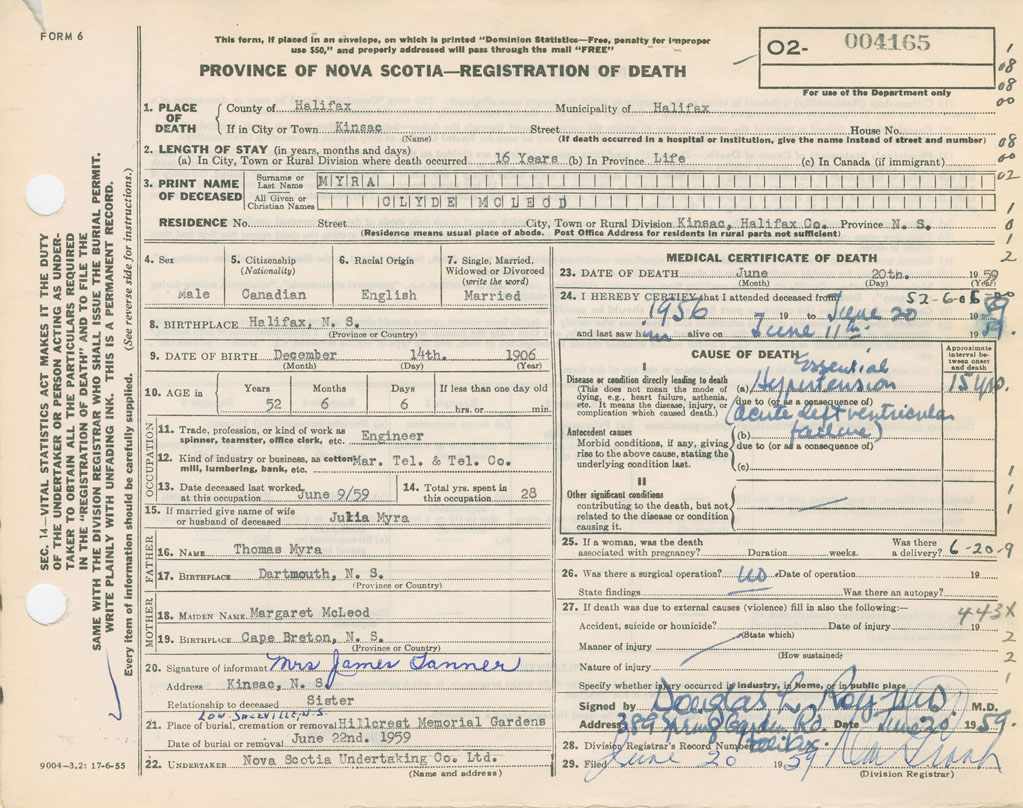 FORM 6
This form, if placed in an envelope, on which is printed "Dominion Statistics—Free, penalty for improper
use $50," and properly addressed will pass through the mail "FREE"
PROVINCE OF NOVA SCOTIA—REGISTRATION OF DEATH
02- 004165
For use of the Department only
1. PLACE OF DEATH
County of Halifax Municipality of Halifax
If in City or Town Kinsac Street House No.
(Name) (If death occurred in a hospital or institution, give the name instead of street and number)
2. LENGTH OF STAY (in years, months and days)
(a) In City, Town or Rural Division where death occurred 16 Years (b) In Province Life (c) In Canada (if immigrant)
3. PRINT NAME OF DECEASED
Surname or Last Name MYRA
All Given or Christian Names CLYDE MCLEOD
RESIDENCE No. Street City, Town or Rural Division Kinsac, Halifax Co. Province N. S.
(Residence means usual place of abode. Post Office Address for residents in rural parts not sufficient)
4. Sex Male
5. Citizenship (Nationality) Canadian
6. Racial Origin English
7. Single, Married, Widowed or Divorced (write the word) Married
8. BIRTHPLACE Halifax, N. S.
(Province or Country)
9. DATE OF BIRTH December 14th. 1906
(Month) (Day) (Year)
10. AGE in Years 52 Months 6 Days 6 If less than one day old hrs. or min.
OCCUPATION
11. Trade, profession, or kind of work as spinner, teamster, office clerk, etc. Engineer
12. Kind of industry or business, as cotton mill, lumbering, bank, etc. Mar. Tel. & Tel. Co.
13. Date deceased last worked at this occupation June 9/59
14. Total yrs. spent in this occupation 28
15. If married give name of wife or husband of deceased Julia Myra
FATHER
16. NAME Thomas Myra
17. BIRTHPLACE Dartmouth, N. S.
(Province or Country)
MOTHER
18. MAIDEN NAME Margaret McLeod
19. BIRTHPLACE Cape Breton, N. S.
(Province or Country)
20. Signature of informant Mrs James Tanner
Address Kinsac, N. S.
Relationship to deceased Sister
Low Sackville, N.S.
21. Place of burial, cremation or removal Hillcrest Memorial Gardens
Date of burial or removal June 22nd. 1959
22. UNDERTAKER Nova Scotia Undertaking Co. Ltd.
(Name and address)
9004—3.2: 17-6-55
MEDICAL CERTIFICATE OF DEATH
23. DATE OF DEATH June 20th. 1959
(Month) (Day) (Year)
24. I HEREBY CERTIFY that I attended deceased from 52-6-06
1956 19 to June 20 19 59
and last saw him alive on June 11th 19 59.
CAUSE OF DEATH
Approximate interval between onset and death
I
Disease or condition directly leading to death
(This does not mean the mode of dying, e.g., heart failure, asthenia, etc. It means the disease, injury, or complication which caused death.)
(a) Essential Hypertension 15 yrs.
due to (or as a consequence of)
(acute left ventricular failure)
Antecedent causes
Morbid conditions, if any, giving rise to the above cause, stating the underlying condition last.
(b)
due to (or as a consequence of)
(c)
II
Other significant conditions
contributing to the death, but not related to the disease or condition causing it.
25. If a woman, was the death associated with pregnancy? Duration weeks. Was there a delivery? 6-20-9
26. Was there a surgical operation? no Date of operation 19
State findings Was there an autopsy?
27. If death was due to external causes (violence) fill in also the following:—
443X
Accident, suicide or homicide? Date of injury 19
(State which)
Manner of injury
(How sustained)
Nature of injury
Specify whether injury occurred in industry, in home, or in public place
Signed by Douglas L. Roy M.D.
Address 389 Spring Garden Rd. Date June 20 1959.
Halifax
28. Division Registrar's Record Number
29. Filed June 20 1959
(Division Registrar)
SEC. 14—VITAL STATISTICS ACT MAKES IT THE DUTY
OF THE UNDERTAKER OR PERSON ACTING AS UNDER-
TAKER TO OBTAIN ALL THE PARTICULARS REQUIRED
IN THE "REGISTRATION OF DEATH" AND TO FILE THE
SAME WITH THE DIVISION REGISTRAR WHO SHALL ISSUE THE BURIAL PERMIT.
WRITE PLAINLY WITH UNFADING INK. THIS IS A PERMANENT RECORD.
Every item of information should be carefully supplied. (See reverse side for instructions.)